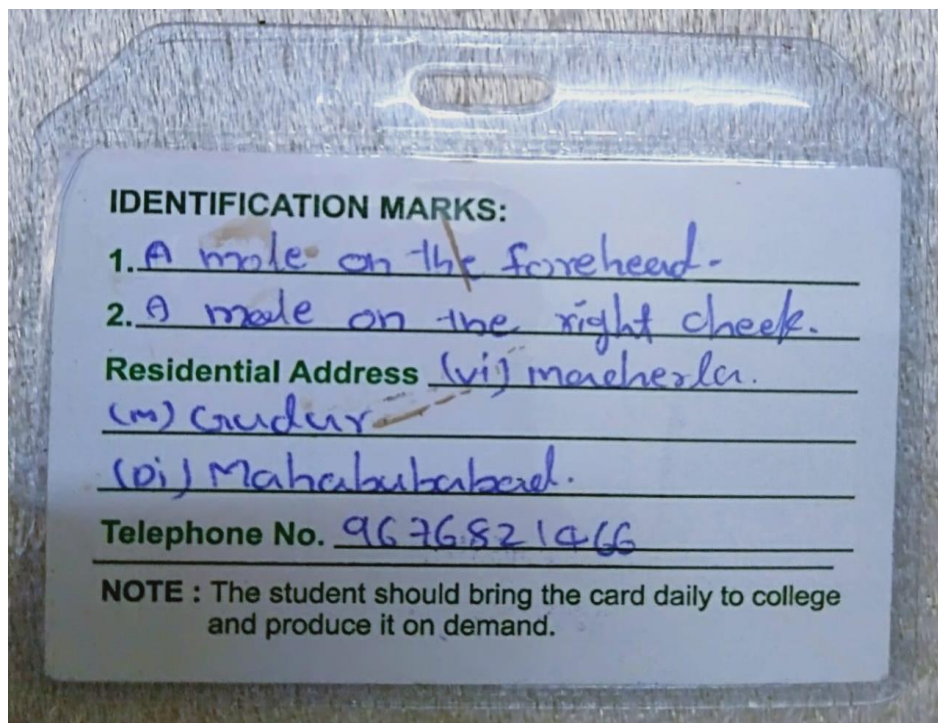 IDENTIFICATION MARKS:
1. A mole on the forehead.
2. A mole on the right cheek.
Residential Address (vi) macherla.
(m) Gudur
(Di) Mahabubabad.
Telephone No. 9676821466
NOTE : The student should bring the card daily to college
and produce it on demand.